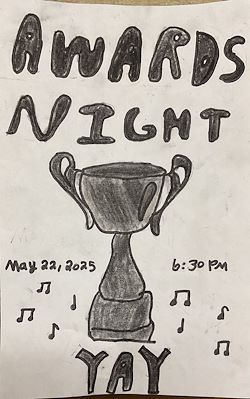 AWARDS
NIGHT
May 22, 2025 6:30 PM
YAY